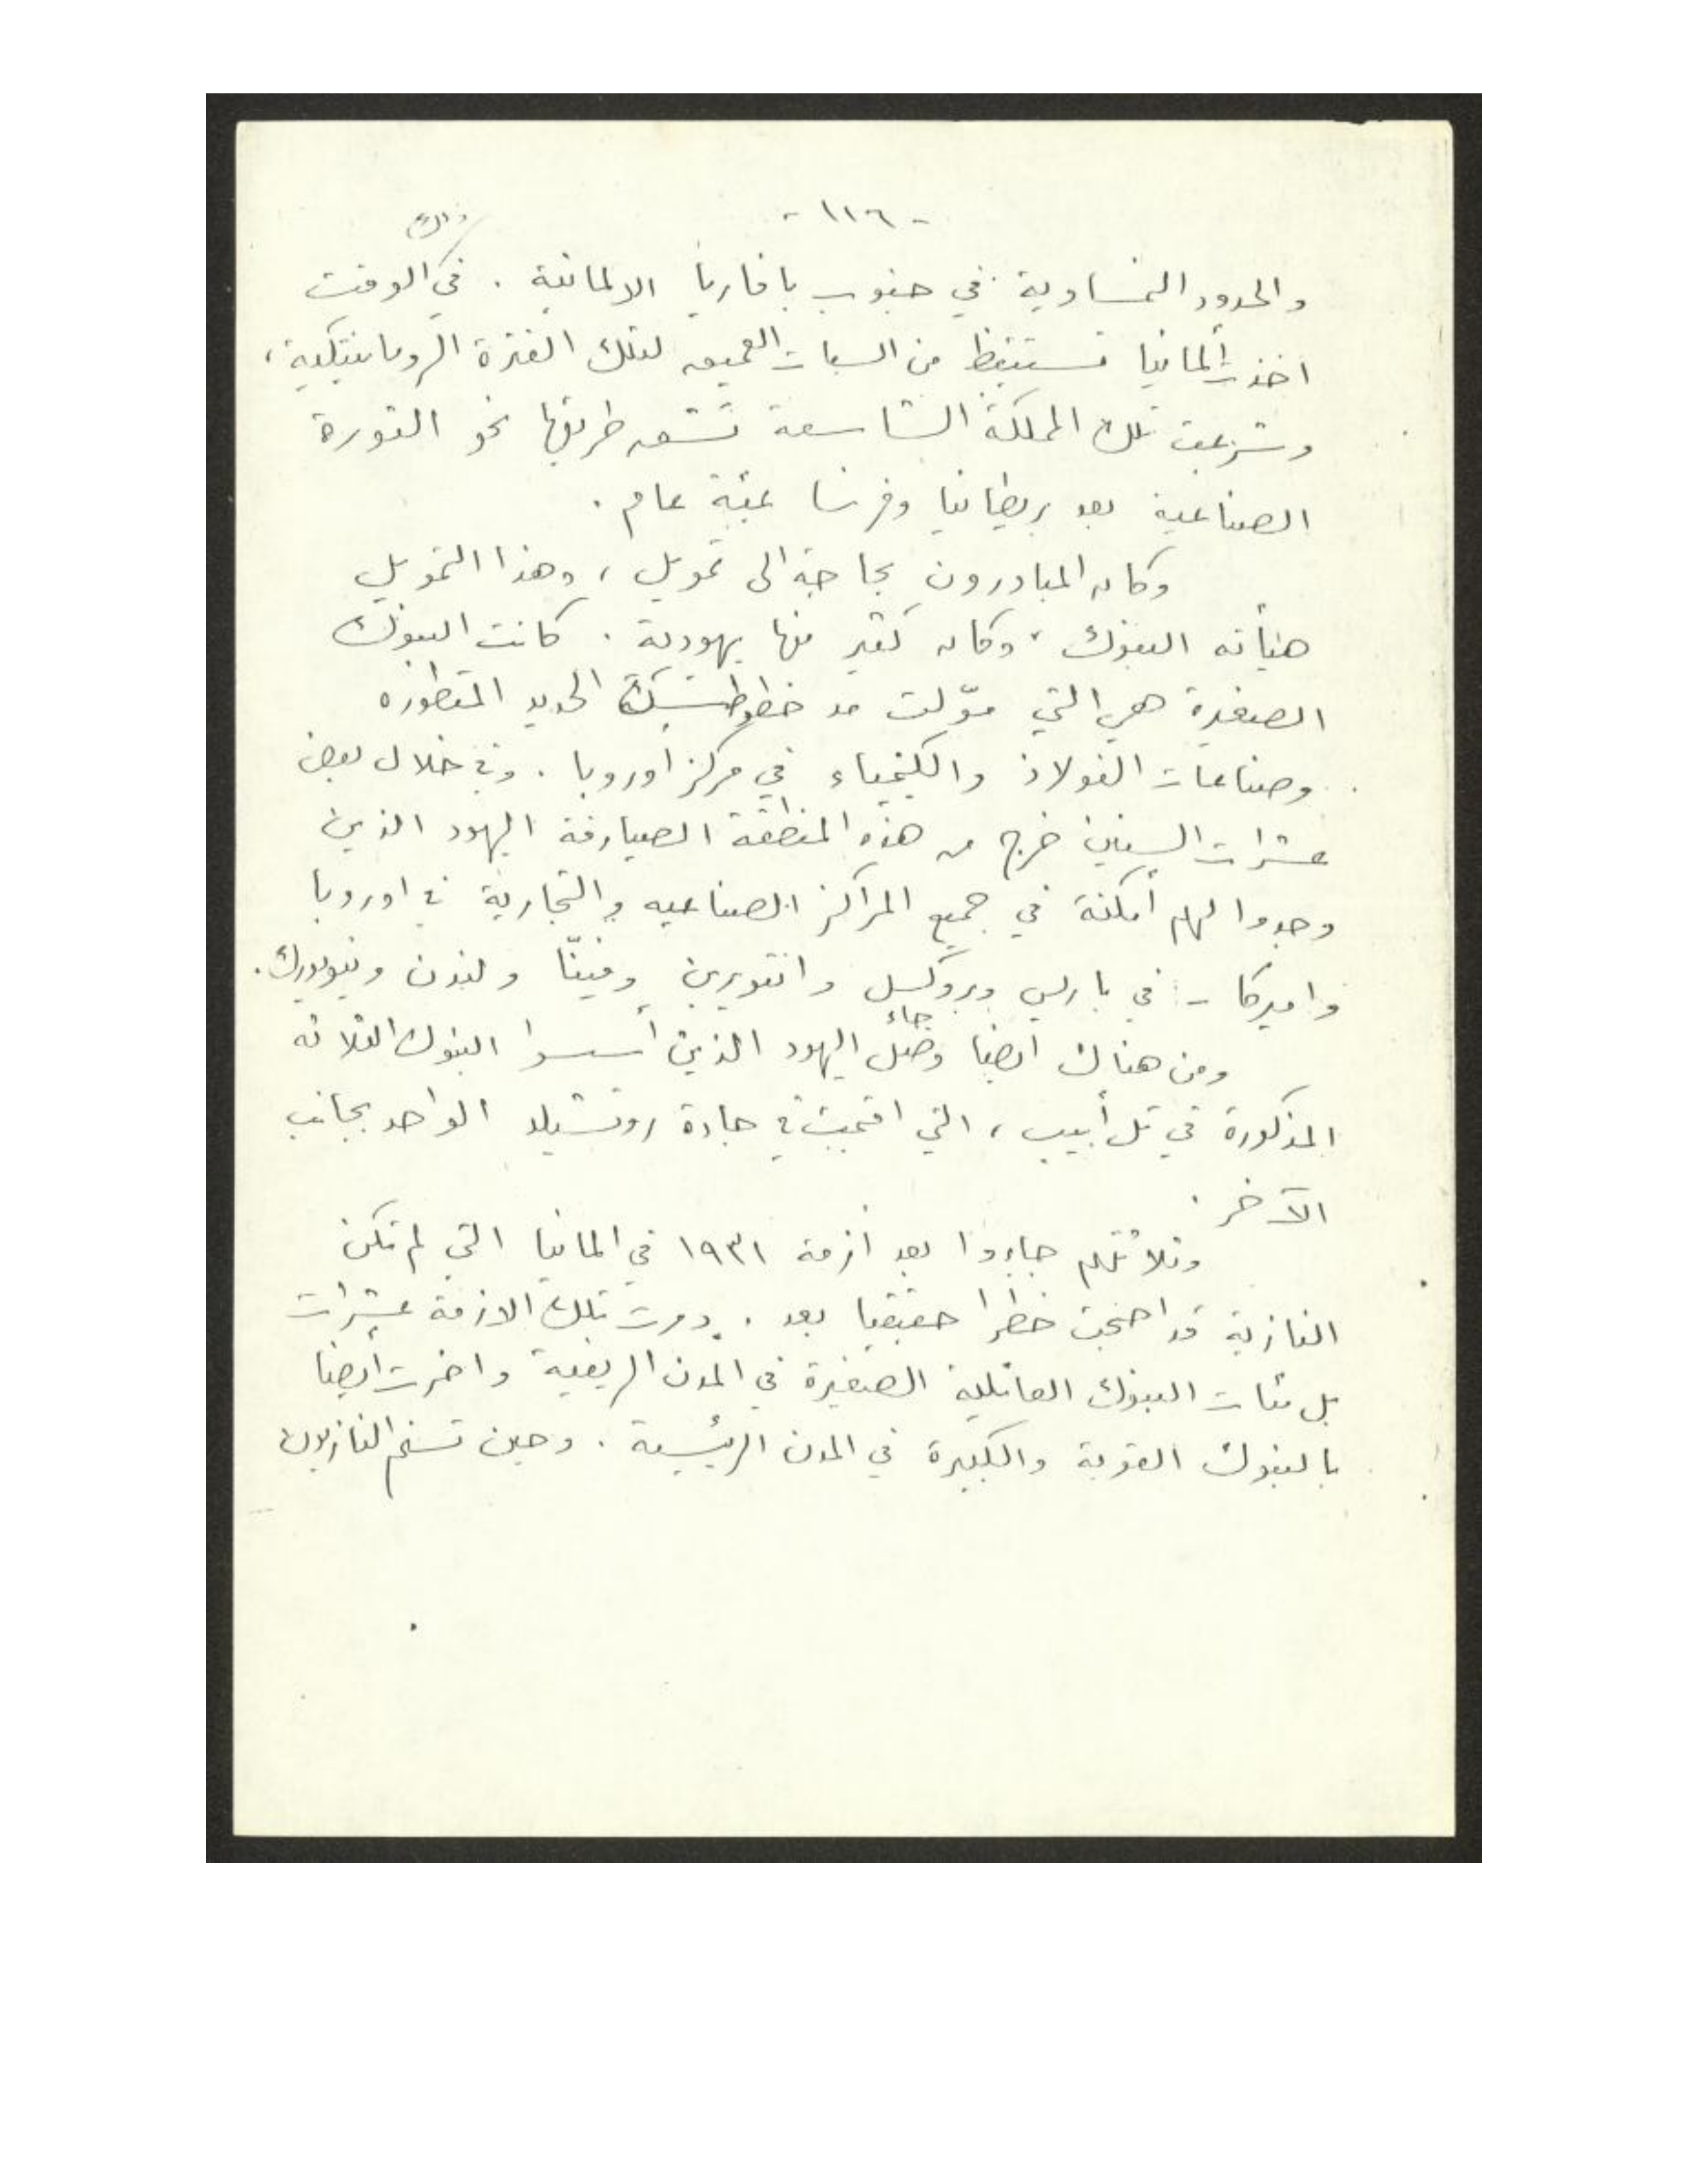 - ١١٦ -
والحدود النمساوية في جنوب بافاريا الالمانية . في ذلك الوقت
اخذت ألمانيا تستيقظ من السبات العميق لتلك الفترة الرومانتيكية ،
وشرعت تلك المملكة الشاسعة تشق طريقها نحو الثورة
الصناعية بعد بريطانيا وفرنسا بمئة عام .
وكان المبادرون بحاجة الى تمويل ، وهذا التمويل
هيأته البنوك ، وكان كثير منها يهودية . كانت البنوك
الصغيرة هي التي موّلت مد خطوط سكة الحديد المتطوره
وصناعات الفولاذ والكيمياء في مركز اوروبا . وفي خلال بعض
عشرات السنين خرج من هذه المنطقة الصيارفة اليهود الذين
وجدوا لهم أمكنة في جميع المراكز الصناعيه والتجارية في اوروبا
واميركا - في باريس وبروكسل وانتويرين وفينّا ولندن ونيويورك .
ومن هناك ايضا جاء اليهود الذين أسسوا البنوك الثلاثه
المذكورة في تل أبيب ، التي اقيمت في جادة روتشيلد الواحد بجانب
الآخر .
وثلاثتهم جاءوا بعد أزمة ١٩٣١ في المانيا التي لم تكن
النازية قد اضحت خطرا حقيقيا بعد . دمرت تلك الازمة عشرات
بل مئات البنوك العائلية الصغيرة في المدن الريفية واضرت أيضا
بالبنوك القوية والكبيرة في المدن الرئيسية . وحين تسنم النازيون